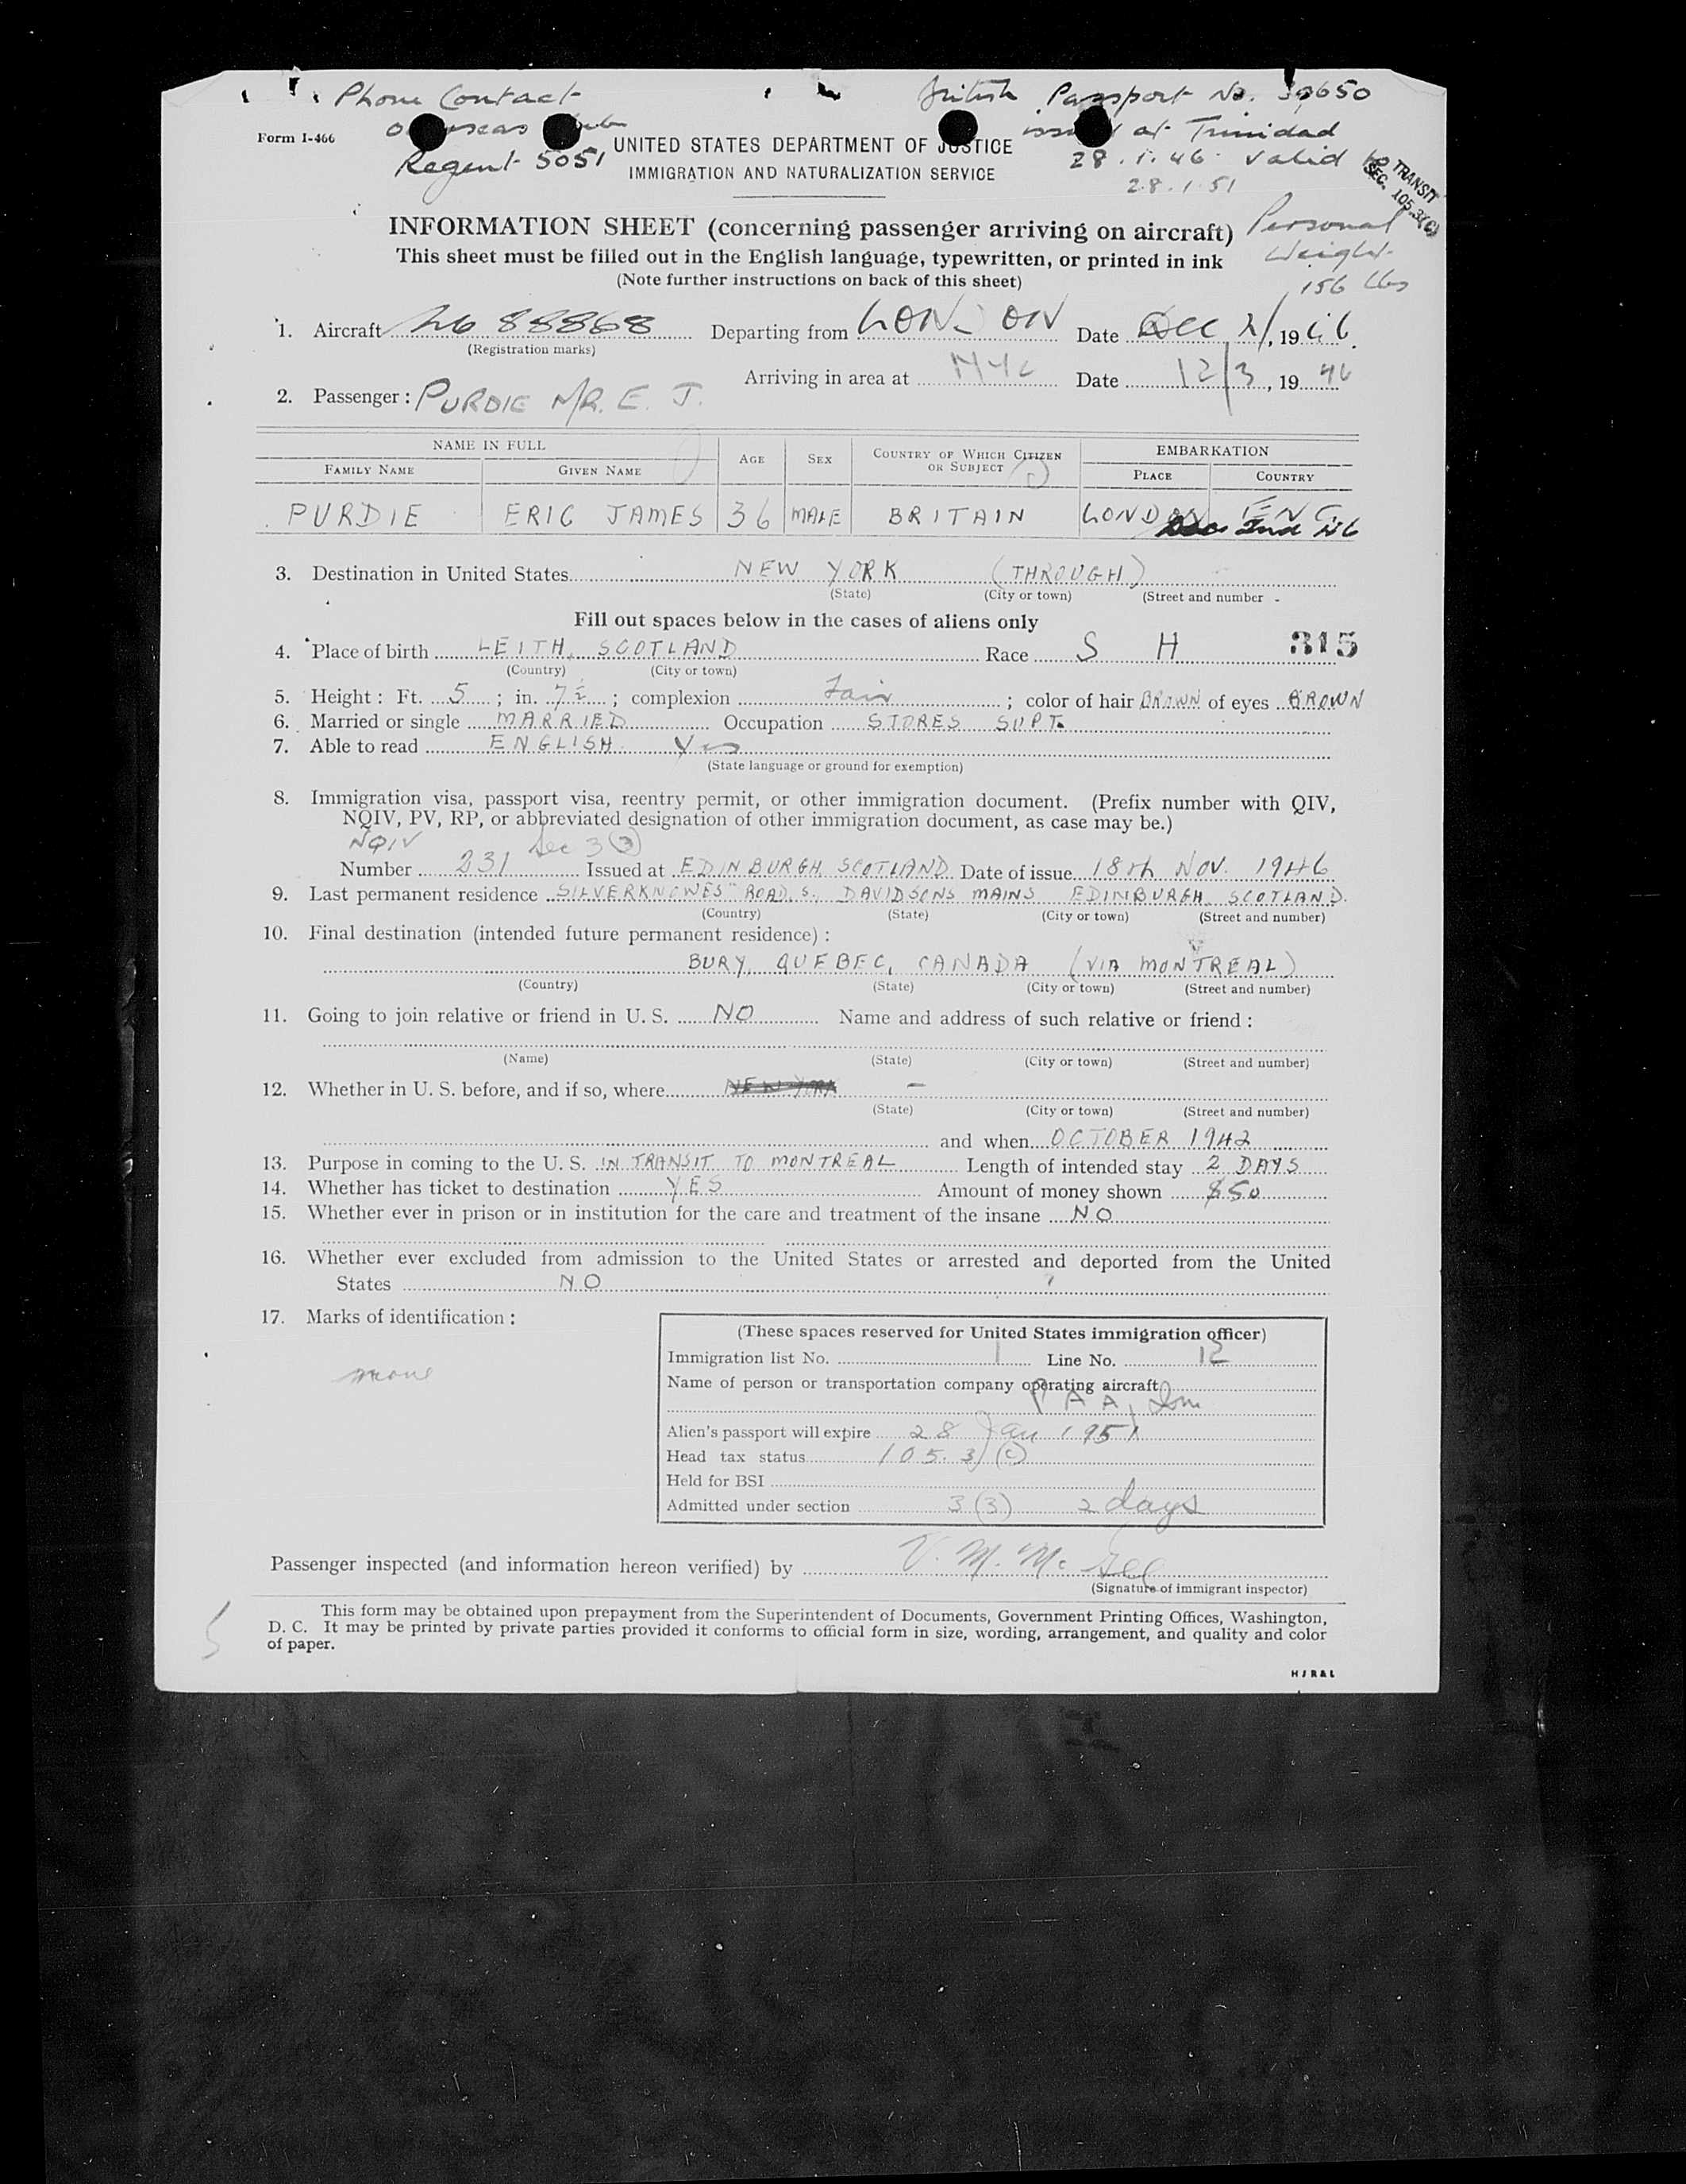 Phone Contact
British Passport No.
Form I-466
Regent 5051
at Trinidad
UNITED STATES DEPARTMENT OF JUSTICE
28.1.46. valid to
IMMIGRATION AND NATURALIZATION SERVICE
28.1.51
TRANSIT
SEC. 105.3(c)
INFORMATION SHEET (concerning passenger arriving on aircraft)
Personal
Weight
156 lbs
This sheet must be filled out in the English language, typewritten, or printed in ink
(Note further instructions on back of this sheet)
1. Aircraft 88868 Departing from LONDON Date Dec 2, 1946.
(Registration marks)
Arriving in area at NYC Date 12/3, 1946
2. Passenger: PURDIE MR. E. J.
NAME IN FULL AGE SEX COUNTRY OF WHICH CITIZEN OR SUBJECT EMBARKATION
FAMILY NAME GIVEN NAME PLACE COUNTRY
PURDIE ERIC JAMES 36 MALE BRITAIN LONDON ENG.
Dec 2nd 46
3. Destination in United States NEW YORK (THROUGH)
(State) (City or town) (Street and number
Fill out spaces below in the cases of aliens only
4. Place of birth LEITH, SCOTLAND Race S H 315
(Country) (City or town)
5. Height: Ft. 5; in. 7½; complexion Fair; color of hair BROWN of eyes BROWN
6. Married or single MARRIED Occupation STORES SUPT.
7. Able to read ENGLISH Yes
(State language or ground for exemption)
8. Immigration visa, passport visa, reentry permit, or other immigration document. (Prefix number with QIV,
NQIV, PV, RP, or abbreviated designation of other immigration document, as case may be.)
NQIV Sec 3 (3)
Number 231 Issued at EDINBURGH SCOTLAND Date of issue 18th NOV. 1946
9. Last permanent residence SILVERKNOWES ROAD, S. DAVIDSONS MAINS EDINBURGH SCOTLAND.
(Country) (State) (City or town) (Street and number)
10. Final destination (intended future permanent residence):
BURY, QUEBEC, CANADA (VIA MONTREAL)
(Country) (State) (City or town) (Street and number)
11. Going to join relative or friend in U. S. NO Name and address of such relative or friend:
(Name) (State) (City or town) (Street and number)
12. Whether in U. S. before, and if so, where NEW YORK –
(State) (City or town) (Street and number)
and when OCTOBER 1942
13. Purpose in coming to the U. S. IN TRANSIT TO MONTREAL Length of intended stay 2 DAYS
14. Whether has ticket to destination YES Amount of money shown $50
15. Whether ever in prison or in institution for the care and treatment of the insane NO
16. Whether ever excluded from admission to the United States or arrested and deported from the United
States NO
17. Marks of identification:
none
(These spaces reserved for United States immigration officer)
Immigration list No. 1 Line No. 12
Name of person or transportation company operating aircraft
P A A,
Alien's passport will expire 28 Jan 1951
Head tax status 105.3(c)
Held for BSI
Admitted under section 3(3) 2 days
Passenger inspected (and information hereon verified) by V. M. McGee
(Signature of immigrant inspector)
This form may be obtained upon prepayment from the Superintendent of Documents, Government Printing Offices, Washington,
D. C. It may be printed by private parties provided it conforms to official form in size, wording, arrangement, and quality and color
of paper.
HJR&L